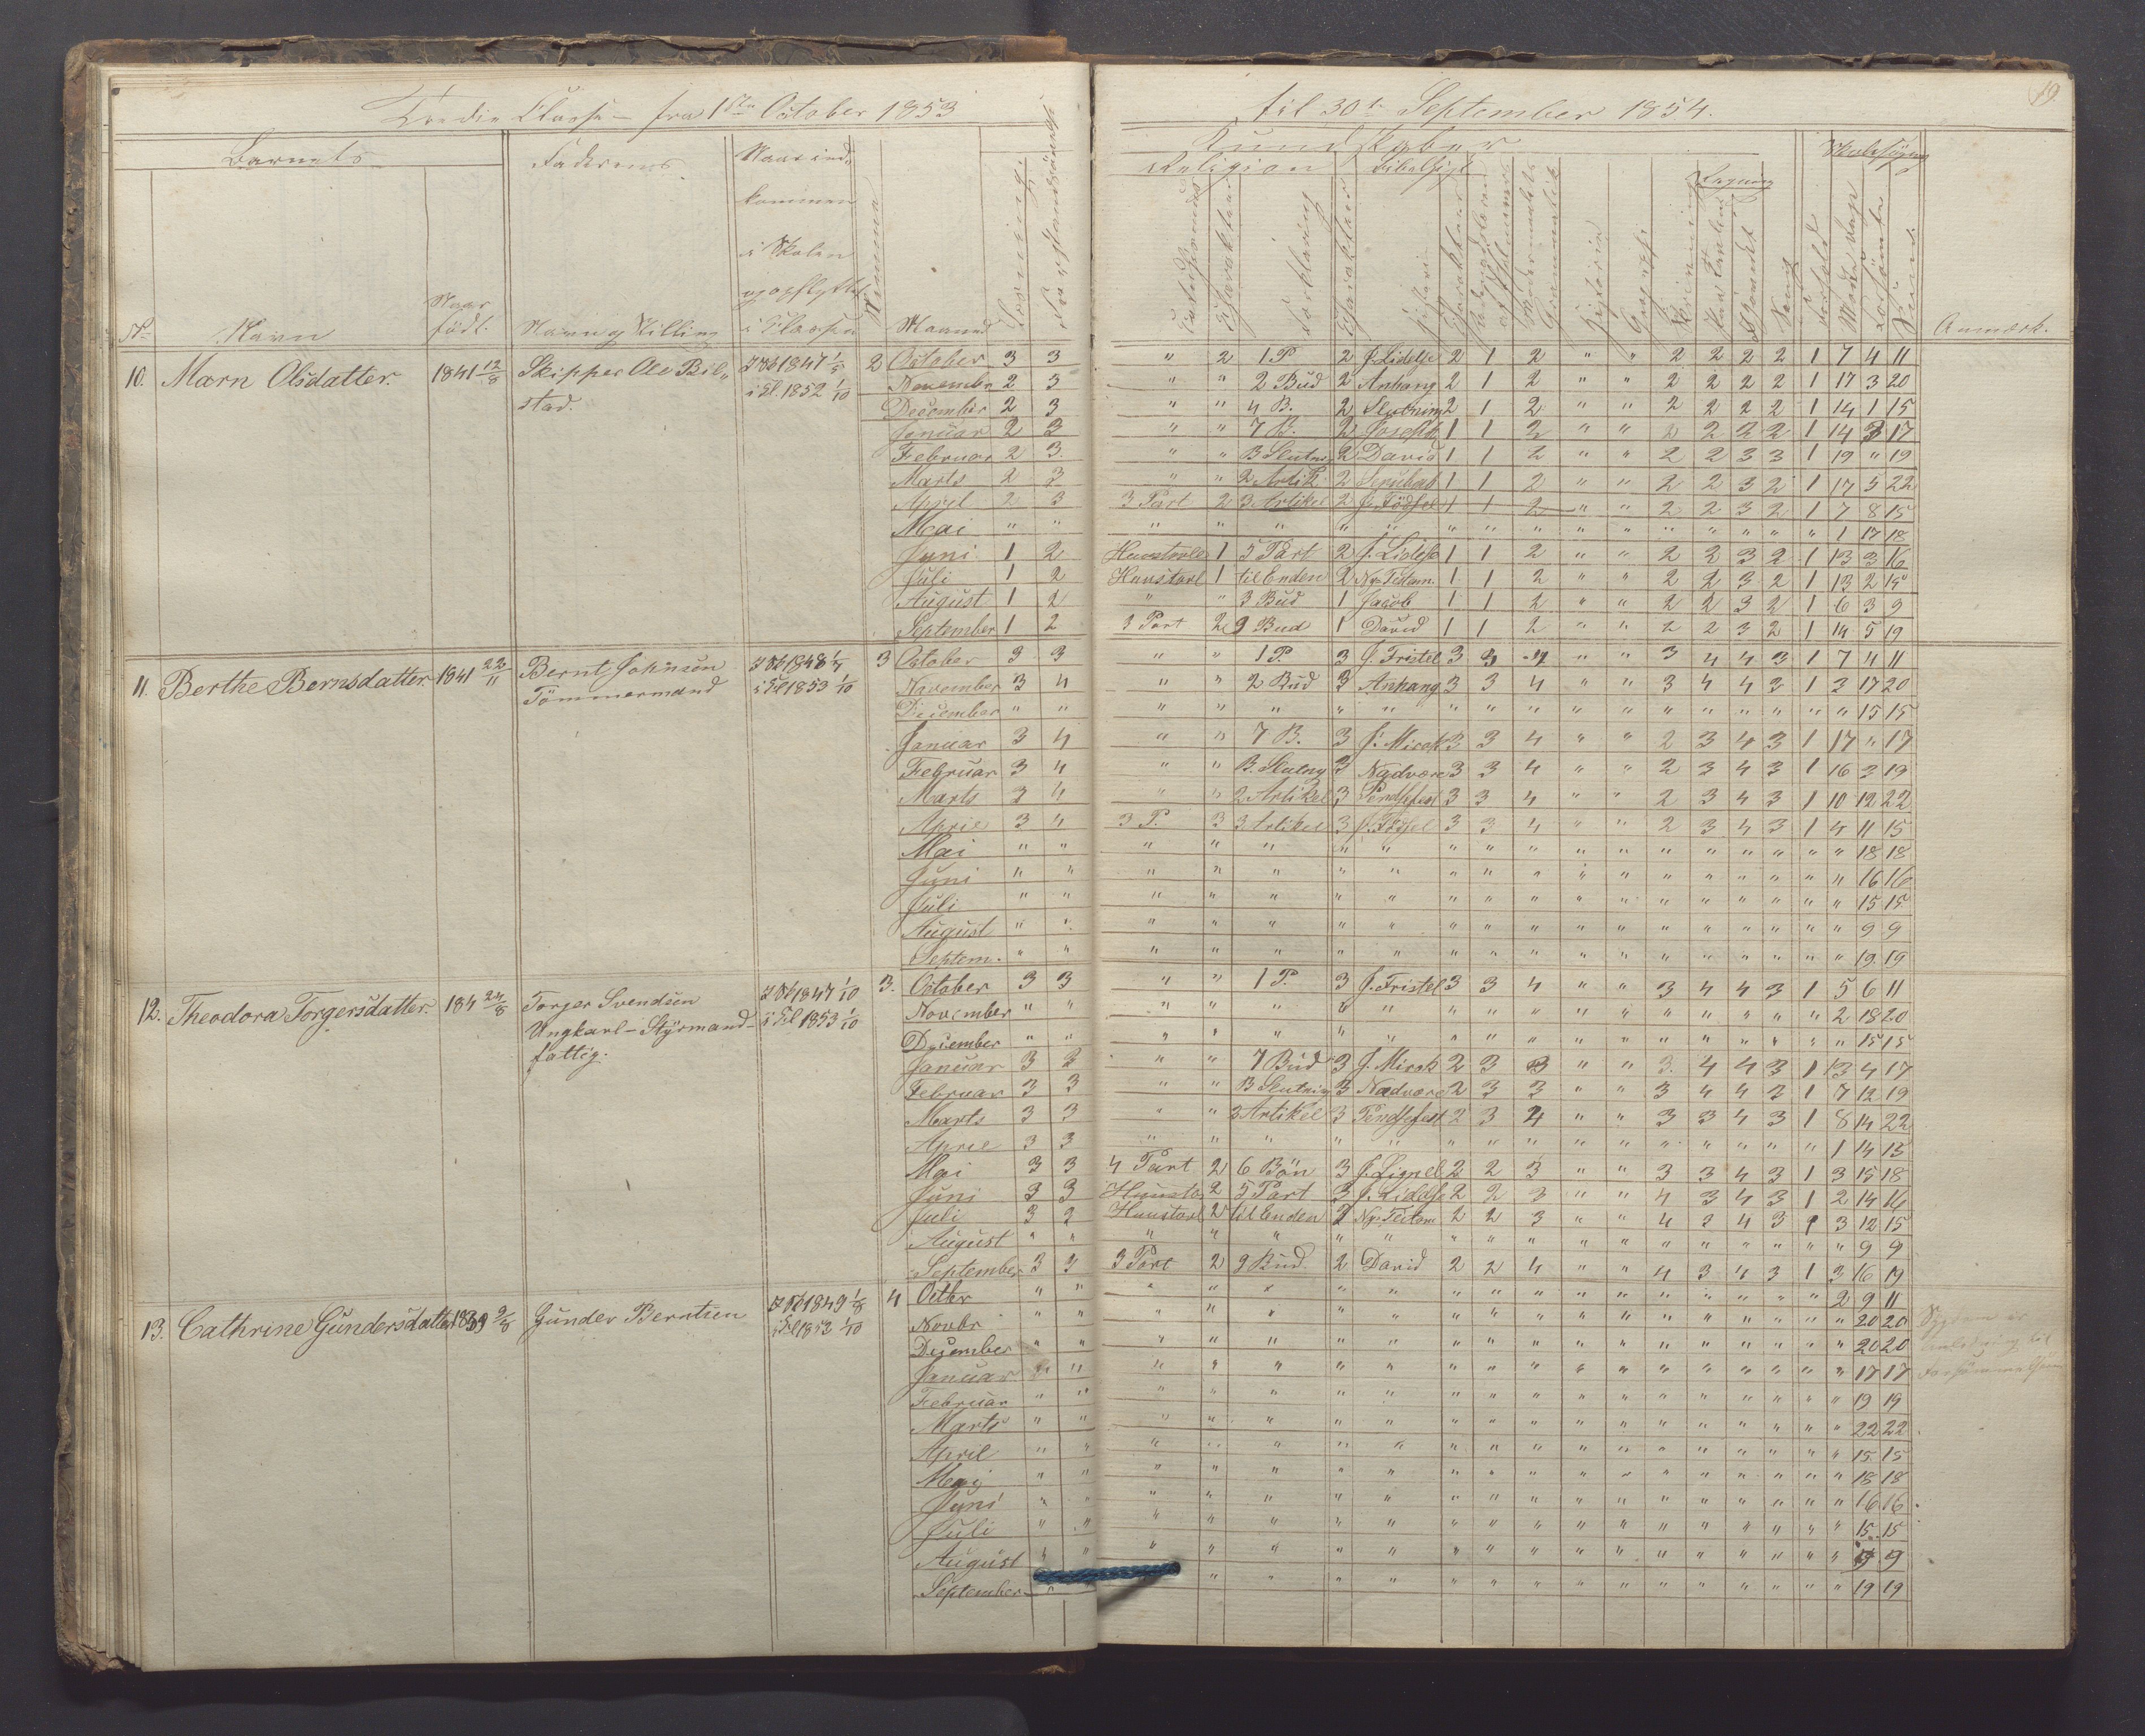 Tredie Classe – fra 1ste October 1853 til 30te September 1854.
19
Barnets Faderens Naar ind- Kundskaber Skolesøgn
kommen Religion Bibelhist
i Skolen Regning
og opflyttet
No Navn Naar født. Navn og Stilling i Classen Nummer Maaned Forklaring Charakteer Historie Geografi Sang Forhold Anmærk.
10. Marn Olsdatter. 1841 12/8 Skipper Ole Bil„ I Sk 1847 1/5 2 October 3 3 " 2 1 P. 2 J. Lidelse 2 1 2 " " 2 2 2 2 1 7 4 11
stad. i Cl. 1852 1/10 November 2 3 " " 2 Bud 2 Anhang 2 1 2 " " 2 2 2 2 1 17 3 20
December 2 3 " " 4 B. 2 Slutning 2 1 2 " " 2 2 2 2 1 14 1 15
Januar 2 3 " " 7 B. 2 Joseph 1 1 2 " " 2 2 2 2 1 14 3 17
Februar 2 3 " " B Slutn 2 David 1 1 2 " " 2 2 3 3 1 19 " 19
Marts 2 3 " " 2 Artik 2 1 1 2 " " 2 2 3 2 1 17 5 22
April 2 3 3 Part 2 3 Artikel 2 J. Fødsel 1 1 2 " " 2 2 3 2 1 7 8 15
Mai " " " " " " " " " " " " " " " " " 1 17 18
Juni 1 2 Huustavle 1 5 Part 2 J. Lidelse 1 1 2 " " 2 2 3 2 1 13 3 16
Juli 1 2 Huustavl 1 til Enden 2 Ny Testam. 1 1 2 " " 2 2 3 2 1 13 2 15
August 1 2 " " 3 Bud 1 Jacob 1 1 2 " " 2 2 3 2 1 6 3 9
September 1 2 3 Part 2 9 Bud 1 David 1 1 2 " " 2 2 3 2 1 14 5 19
11. Berthe Bernsdatter. 1841 22/11 Bernt Johnsen I Sk 1848 1/7 3 October 3 3 " " 1 P. 3 J. Fristel 3 3 4 " " 3 4 4 3 1 7 4 11
Tømmermand i Cl 1853 1/10 November 3 4 " " 2 Bud 3 Anhang 3 3 4 " " 3 4 4 3 1 3 17 20
December " " " " " " " " " " " " " " " " " " 15 15
Januar 3 4 " " 7 B. 3 J. Mirak 3 3 4 " " 2 3 4 3 1 17 " 17
Februar 3 4 " " B. Slutng 3 Nadvere 3 3 4 " " 2 3 4 3 1 16 3 19
Marts 3 4 " " 2 Artikel 3 Pindsefest 3 3 4 " " 2 3 4 3 1 10 12 22
April 3 4 3 P. 3 3 Artikel 3 J. Fødsel 3 3 4 " " 2 3 4 3 1 4 11 15
Mai " " " " " " " " " " " " " " " " " " 18 18
Juni " " " " " " " " " " " " " " " " " " 16 16
Juli " " " " " " " " " " " " " " " " " " 15 15
August " " " " " " " " " " " " " " " " " " 9 9
Septem. " " " " " " " " " " " " " " " " " " 19 19
12. Theodora Torgersdatter. 184 24/8 Torger Svendsen I Sk 1847 1/10 3. October 3 3 " " 1 P. 3 J. Fristel 3 3 4 " " 3 4 4 3 1 5 6 11
Ungkarl – Styrmand – i Cl 1853 1/10 November " " " " " " " " " " " " " " " " " 2 18 20
fattig. December " " " " " " " " " " " " " " " " " " 15 15
Januar 3 3 " " 7 Bud 3 J. Mirak 2 3 3 " " 3. 4 4 3 1 13 4 17
Februar 3 3 " " B Slutning 3 Nadvere 2 3 3 " " 3 4 4 3 1 7 12 19
Marts 3 3 " " 2 Artikel 3 Pindsefest 2 3 4 " " 3 3 4 3 1 8 14 22
April 3 3 " " " " " " " " " " " " " " " 1 14 15
Mai 3 3 4 Part 2 6 Bøn 3 J. Lignel 2 2 3 " " 3 3 4 3 1 3 15 18
Juni 3 3 Huusta 2 5 Part 3 J. Lidelse 2 2 3 " " 4 3 4 3 1 2 14 16
Juli 3 3 Huustavl 2 til Enden 2 Ny Testam 2 2 3 " " 4 3 4 3 1 3 12 15
August " " " " " " " " " " " " " " " " " " 9 9
September 3 3 3 Part 2 9 Bud 2 David 2 2 4 " " 4 3 4 3 1 3 16 19
13. Cathrine Gundersdatter 1839 9/8 Gunder Berntsen I Sk 1849 1/8 4 Octbr " " " " " " " " " " " " " " " " " 2 9 11
i Cl 1853 1/10 Novbr " " " " " " " " " " " " " " " " " " 20 20 Sygdom er
December " " " " " " " " " " " " " " " " " " 20 20 Anledning til
Januar " " " " " " " " " " " " " " " " " " 17 17 Forsømmelsen
Februar " " " " " " " " " " " " " " " " " " 19 19
Marts " " " " " " " " " " " " " " " " " " 22 22
April " " " " " " " " " " " " " " " " " " 15 15
Maj " " " " " " " " " " " " " " " " " " 18 18
Juni " " " " " " " " " " " " " " " " " " 16 16
Juli " " " " " " " " " " " " " " " " " " 15 15
August " " " " " " " " " " " " " " " " " " 9 9
September " " " " " " " " " " " " " " " " " 19 19